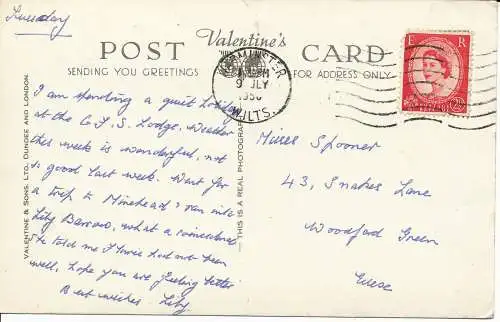 Tuesday
POST Valentine's CARD
SENDING YOU GREETINGS
FOR ADDRESS ONLY
WARMINSTER
9 JLY
WILTS.
E R
I am spending a quiet holiday
at the G.F.S. Lodge. Weather
this week is wonderful, not
so good last week. Went for
a trip to Minehead & ran into
Lily Barrow, what a coincidence
She told me Florrie had not been
well, hope you are feeling better
Best wishes. Lily.
Misses Spooner
43, Snakes Lane
Woodford Green
Essex
VALENTINE & SONS, LTD., DUNDEE AND LONDON.
— THIS IS A REAL PHOTOGRAPH